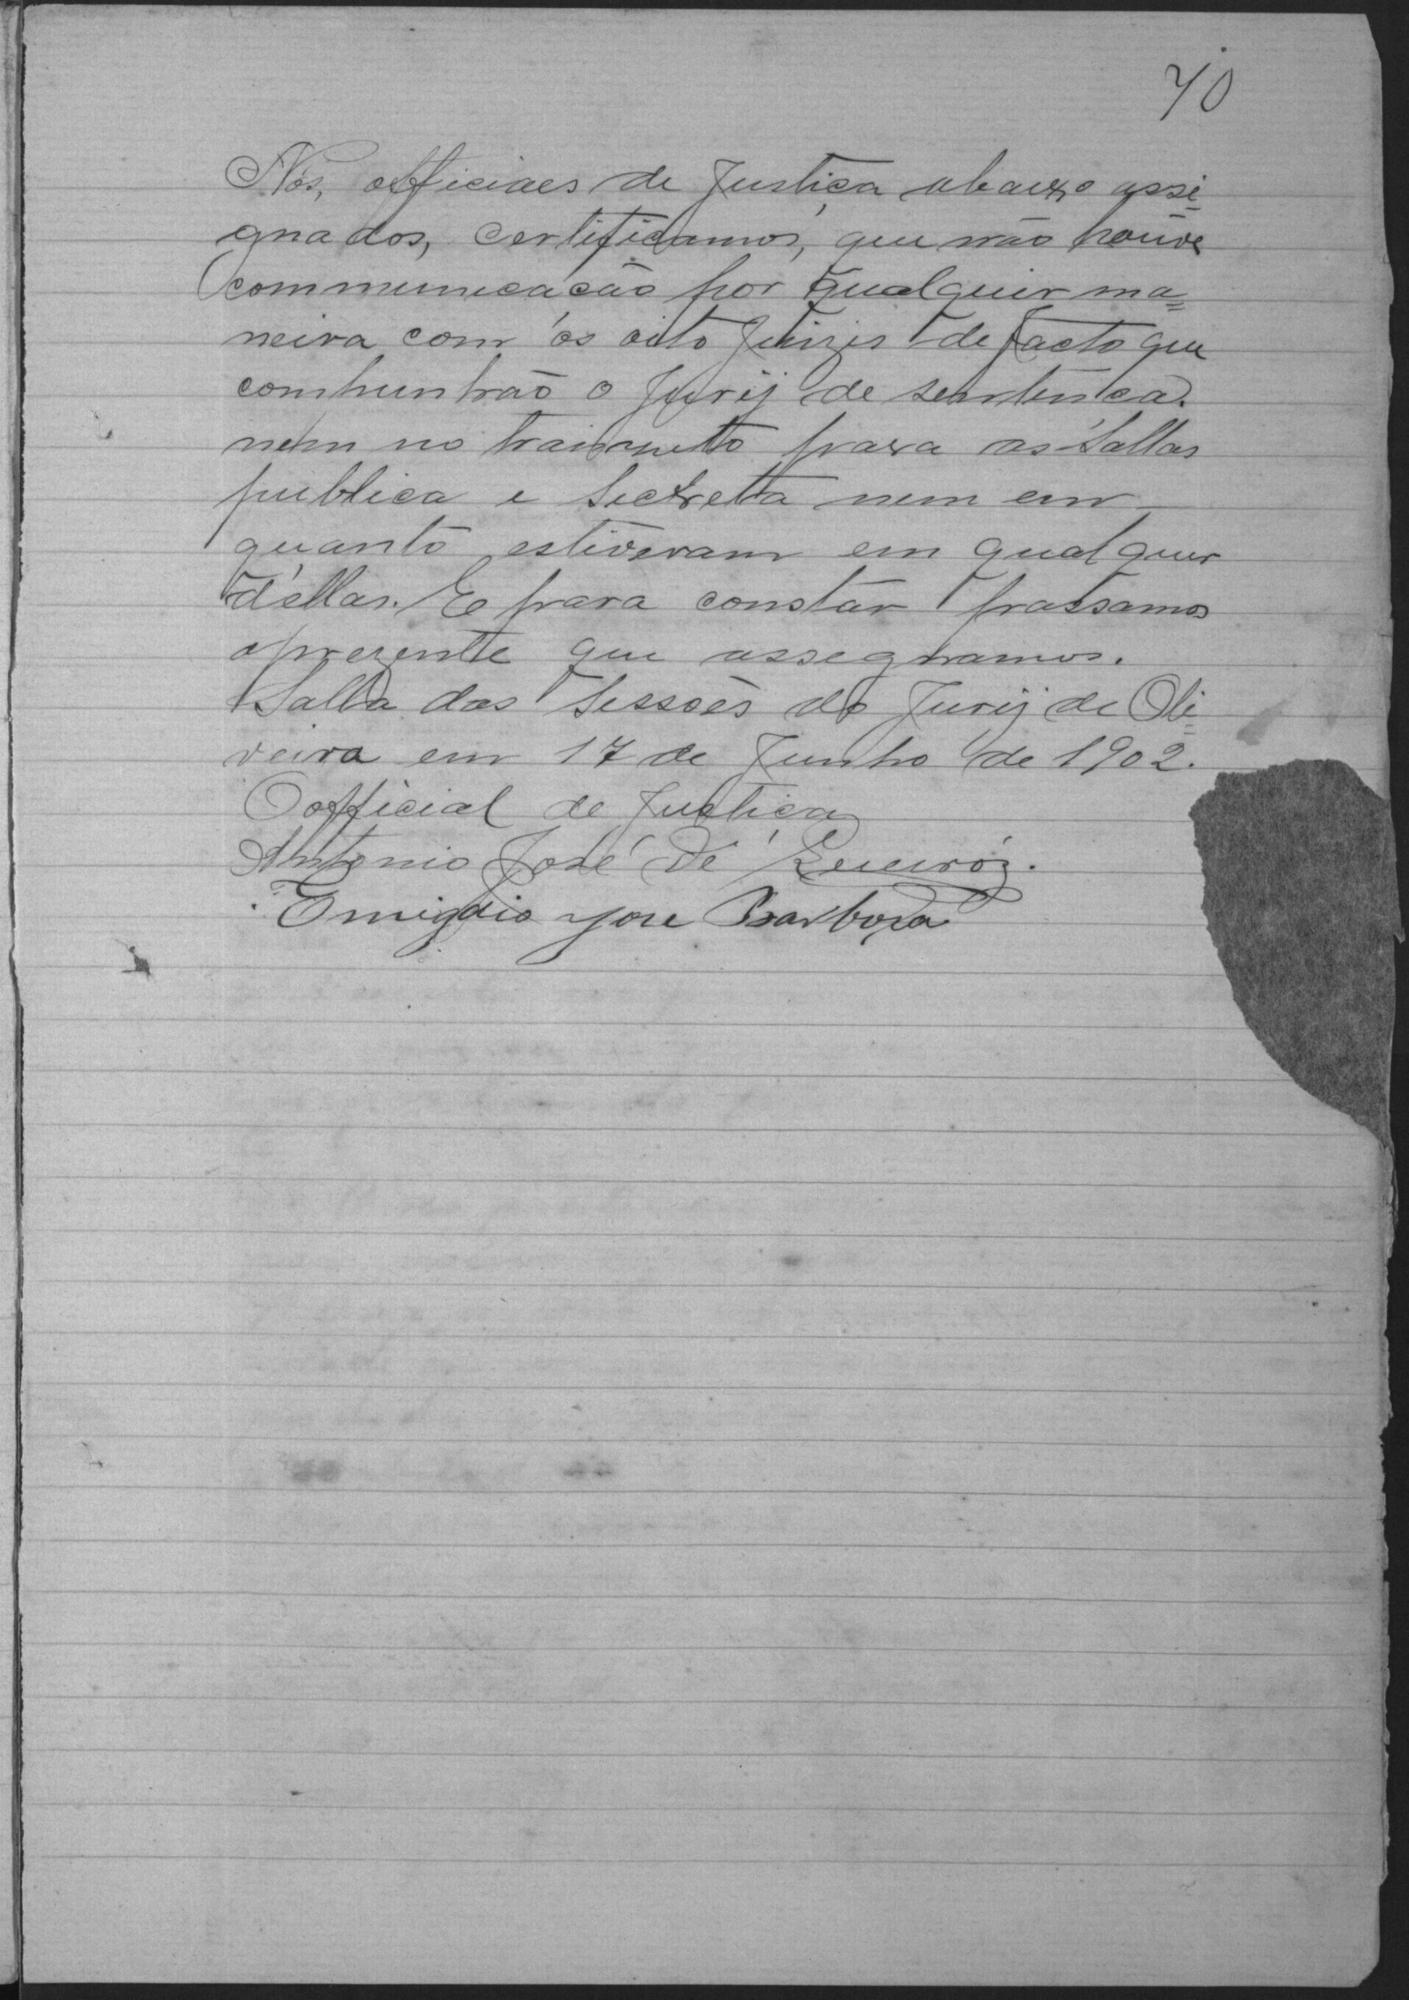 40
Nós, officiaes de Justiça abaixo assi=
gnados, certificamos, que não houve
communicacão por qualquer ma=
neira com os oito Juizes de facto que
compunhão o Jurÿ de sentença.
nem no trainsito para as Sallas
publica e Secreta nem em
quanto estiveram em qualquer
d'éllas. E para constar passamos
aprezente que assegnamos.
Salla das Sessões do Jurÿ de Oli=
veira em 17 de Junho de 1902.
O official de Justiça
Antonio José de Queiróz.
Emigdio Jose Barbosa